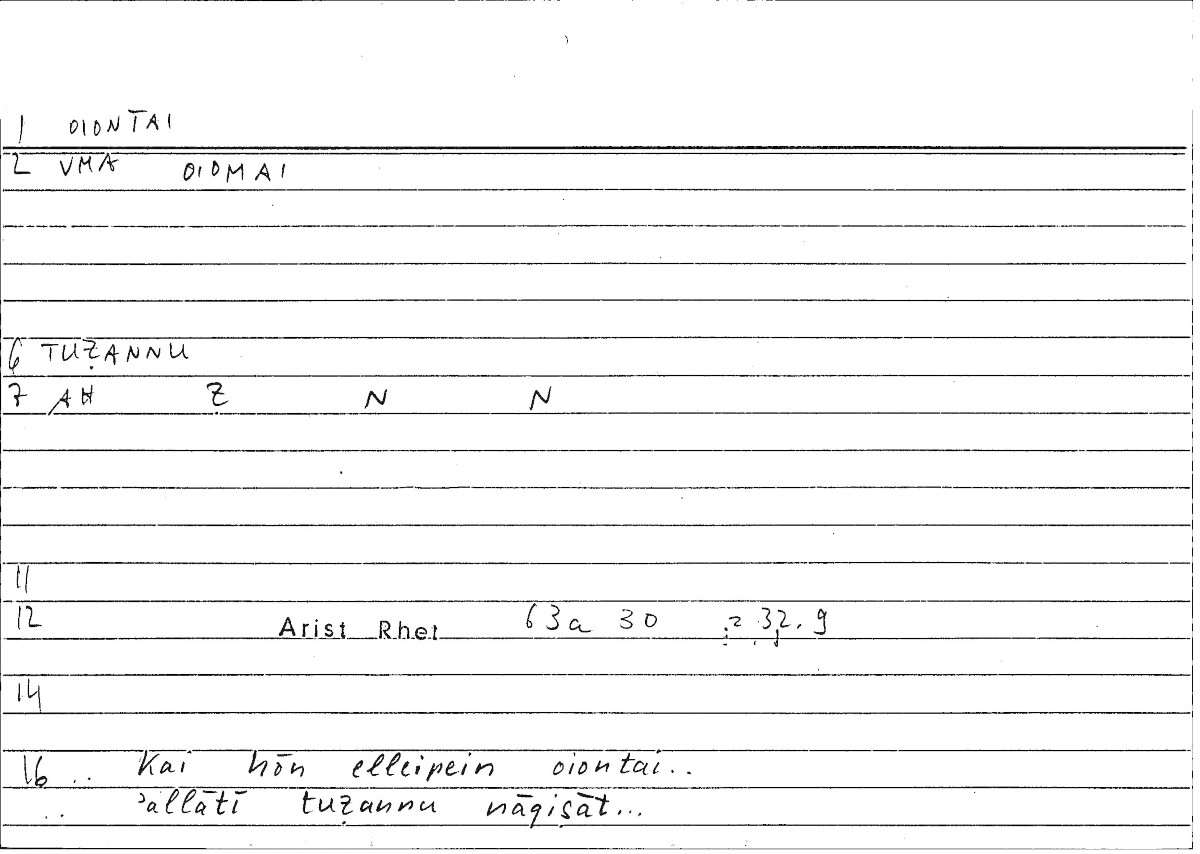 1 OIONTAI
2 VMA OIOMAI
6 TUẒANNU
7 AH Z N N
11
12 Arist Rhet 63a 30 = 32.9
14
16 .. Kai hōn elleipein oiontai..
.. ʾallātī tuẓannu nāqiṣāt...